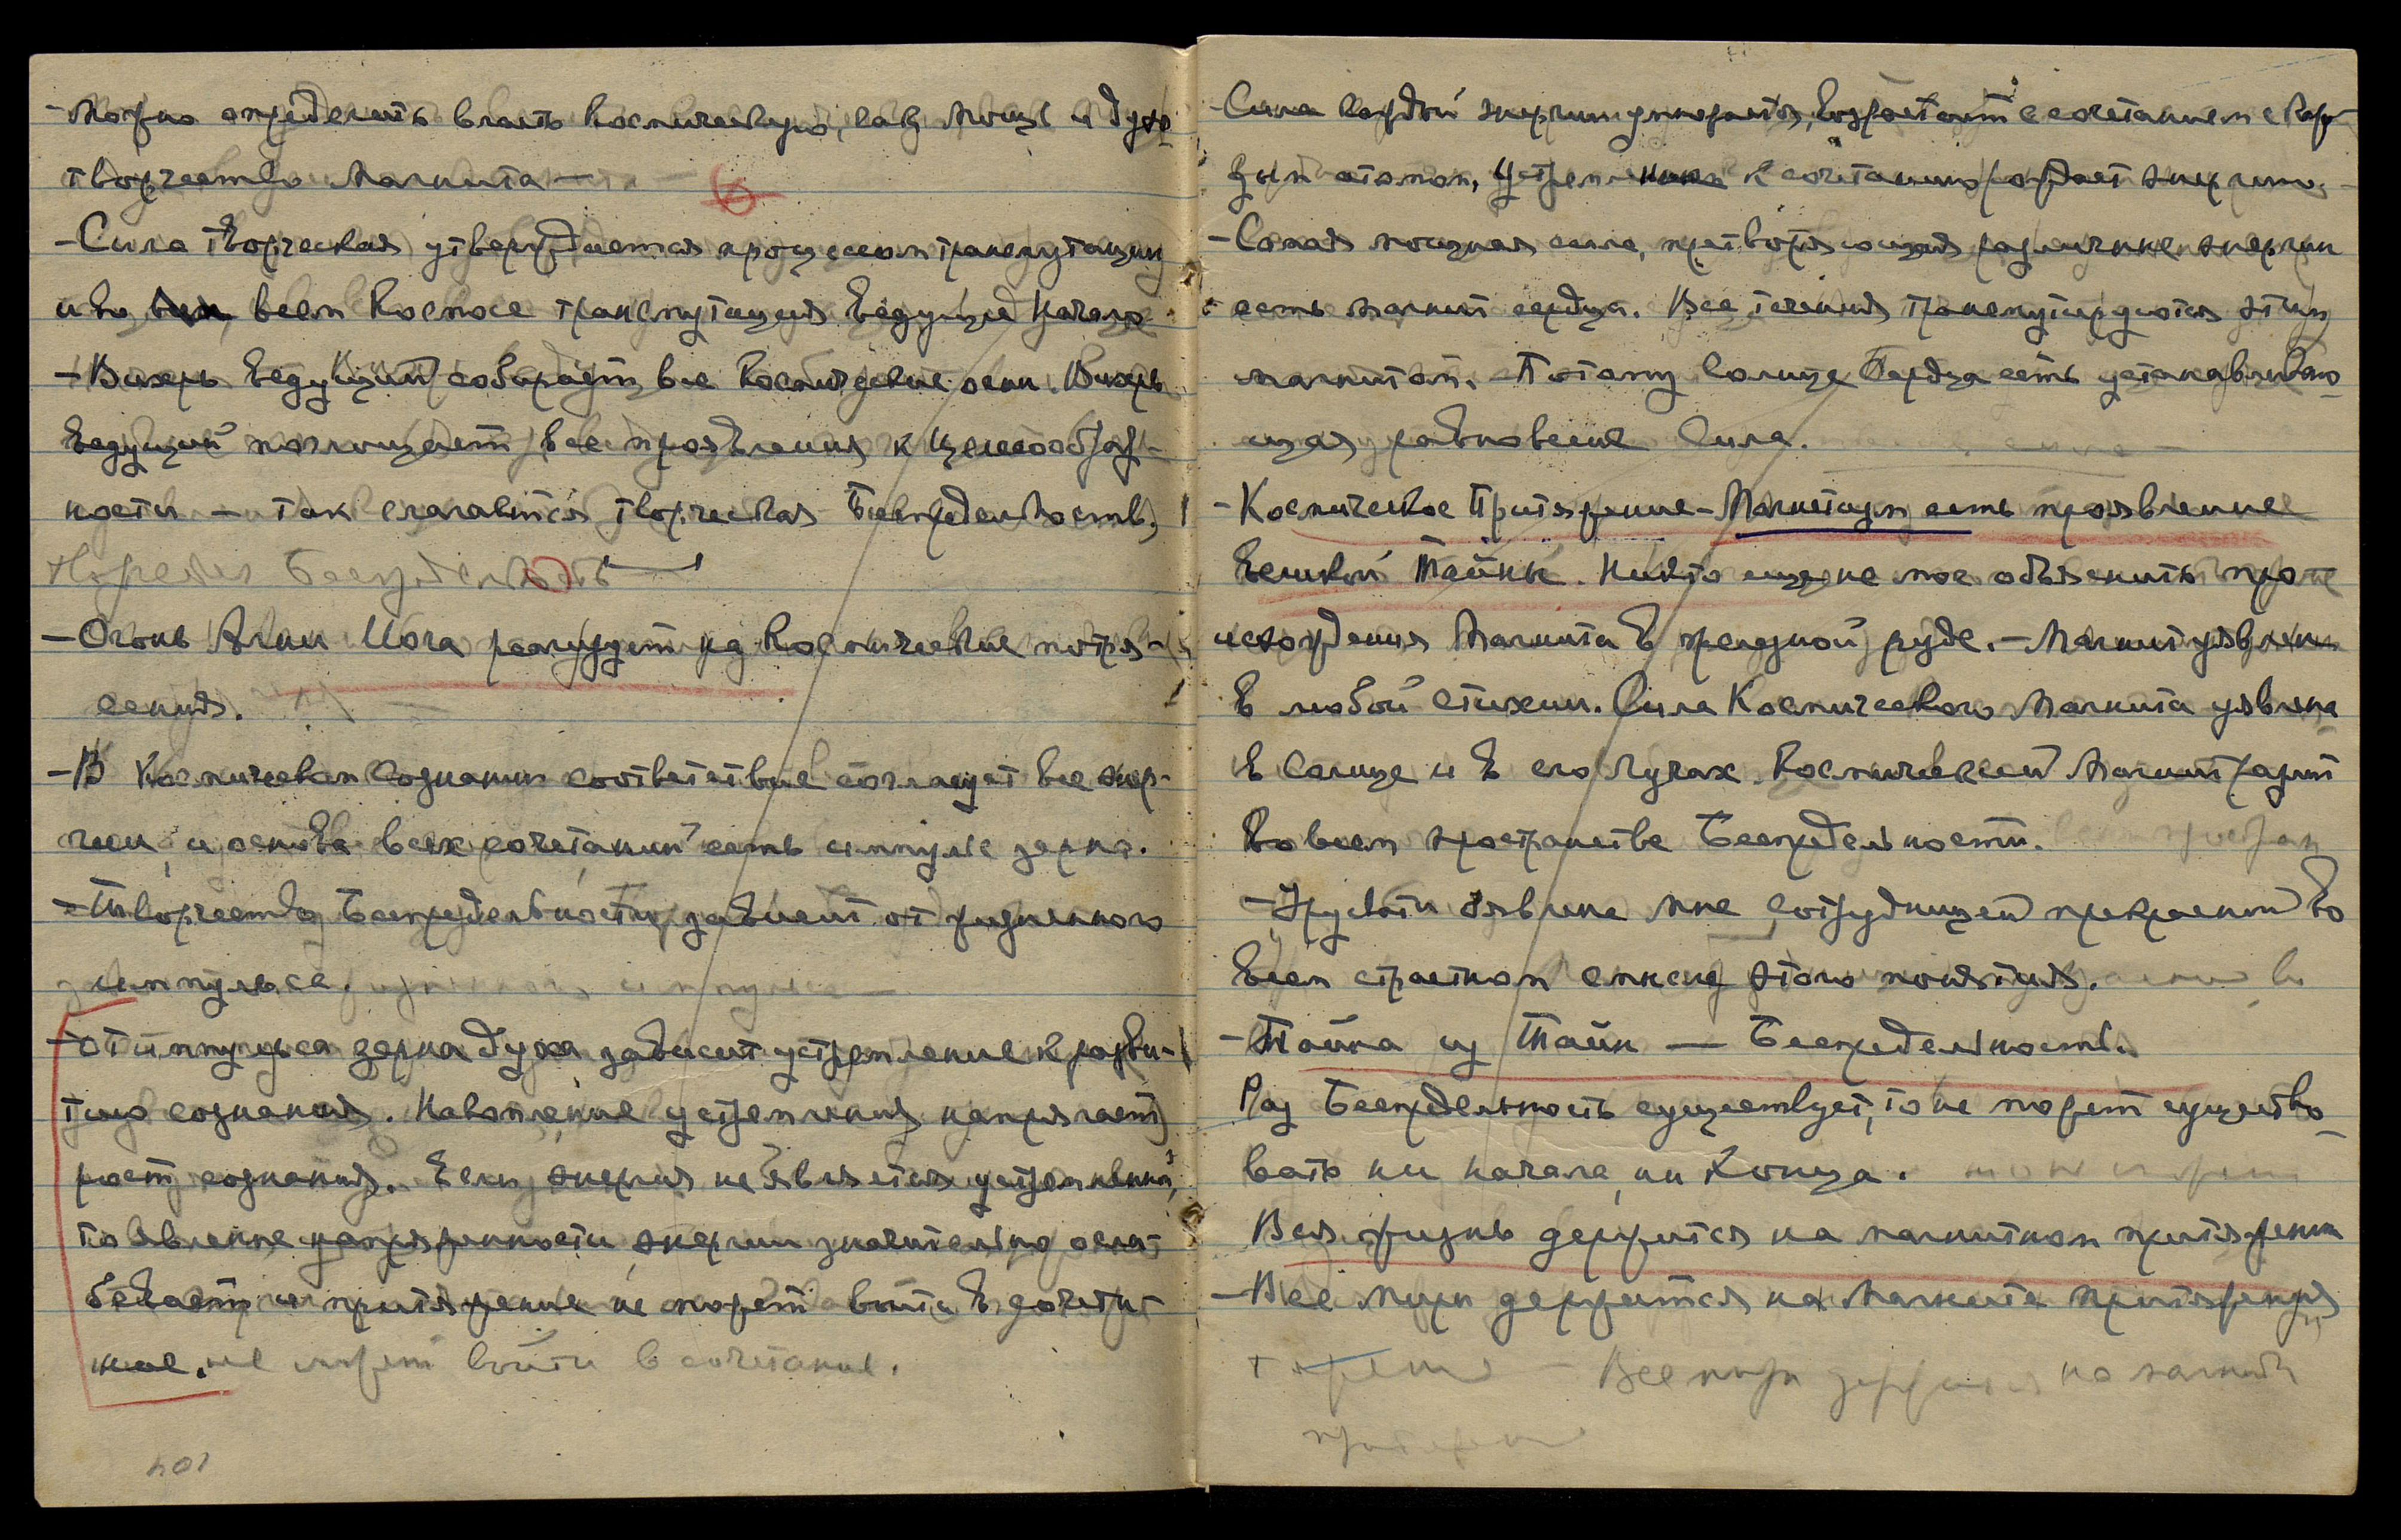 - Можно определить власть Космическую, как мощь и духо
творчество Магнита —
- Сила творческая утверждается процессом трансмутации
и во всем Космосе трансмутация ведущее Начало
- Вихрь ведущий собирает все Космические огни. Вихрь
ведущий поглощает все проявления к целесообраз-
ности — так слагается творческая Беспредельность,
Беспредельность —
- Огонь Агни Йога реагирует на Космические потря-
сения.
- В Космическом Сознании соответствие согласует все энер-
гии, и основа всех сочетаний есть импульс зерна.
- Творчество Беспредельности зависит от жизненного
импульса.
- От импульса зерна духа зависит устремление к разви-
тию сознания. Накопление устремления напрягает
рост сознания. Если энергия не является устремленной,
то явление напряженности энергии значительно осла-
бевает и притяжение не может войти в сочета-
ние. не может войти в сочетание.
104
- Сила каждой энергии умножается, возрастает с сочетанием с каж-
дым атомом, Устремление к сочетанию рождает энергию.
- Самая мощная сила, претворяющая различные энергии
есть магнит сердца. Все течения трансмутируются этим
магнитом. Потому Солнце Сердца есть устанавливаю-
щая равновесие Сила.
- Космическое Притяжение - Магнетизм есть проявление
Великой Тайны. Никто еще не мог объяснить про-
исхождения Магнита в железной руде. - Магнит явлен
в любой стихии. Сила Космического Магнита явлена
в Солнце и в его Лучах. Космический Магнит царит
во всем пространстве Беспредельности.
- Урусвати явлена Мне сотрудницей прекрасной во
всем страстном смысле этого понятия.
- Тайна из Тайн — Беспредельность.
Раз Беспредельность существует, то не может существо-
вать ни начала, ни Конца.
Вся жизнь держится на магнитном притяжении
- Все миры держатся на Магните притяжения
Все миры держатся на магните